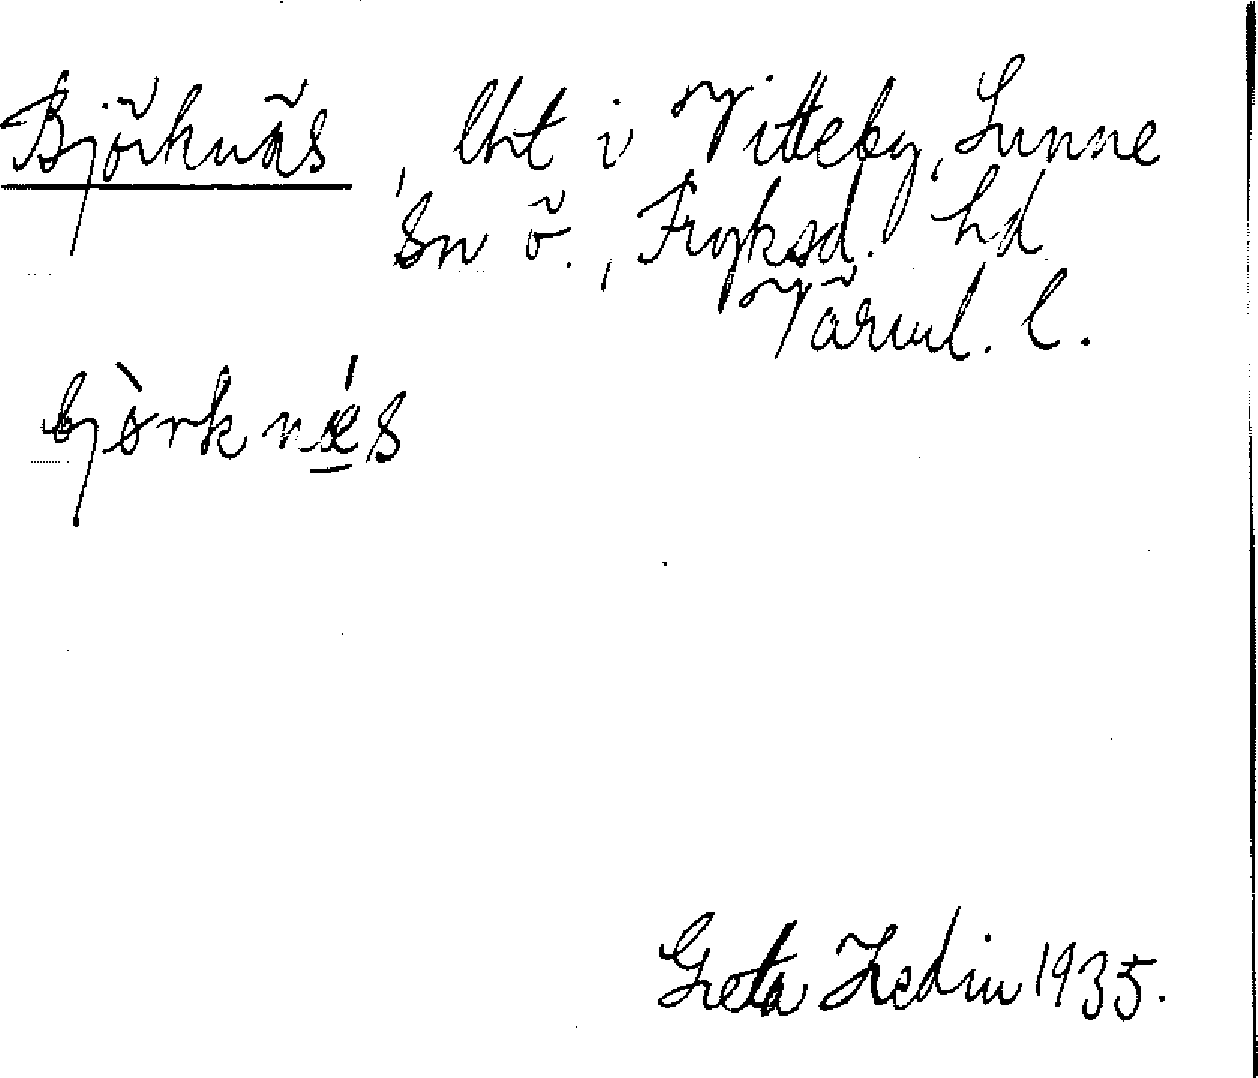 Björknäs, lht i Vitteby, Sunne
Sn ö., Fryksd. hd
Värml. l.
bjò̀rknǽs
Greta Hedin 1935.